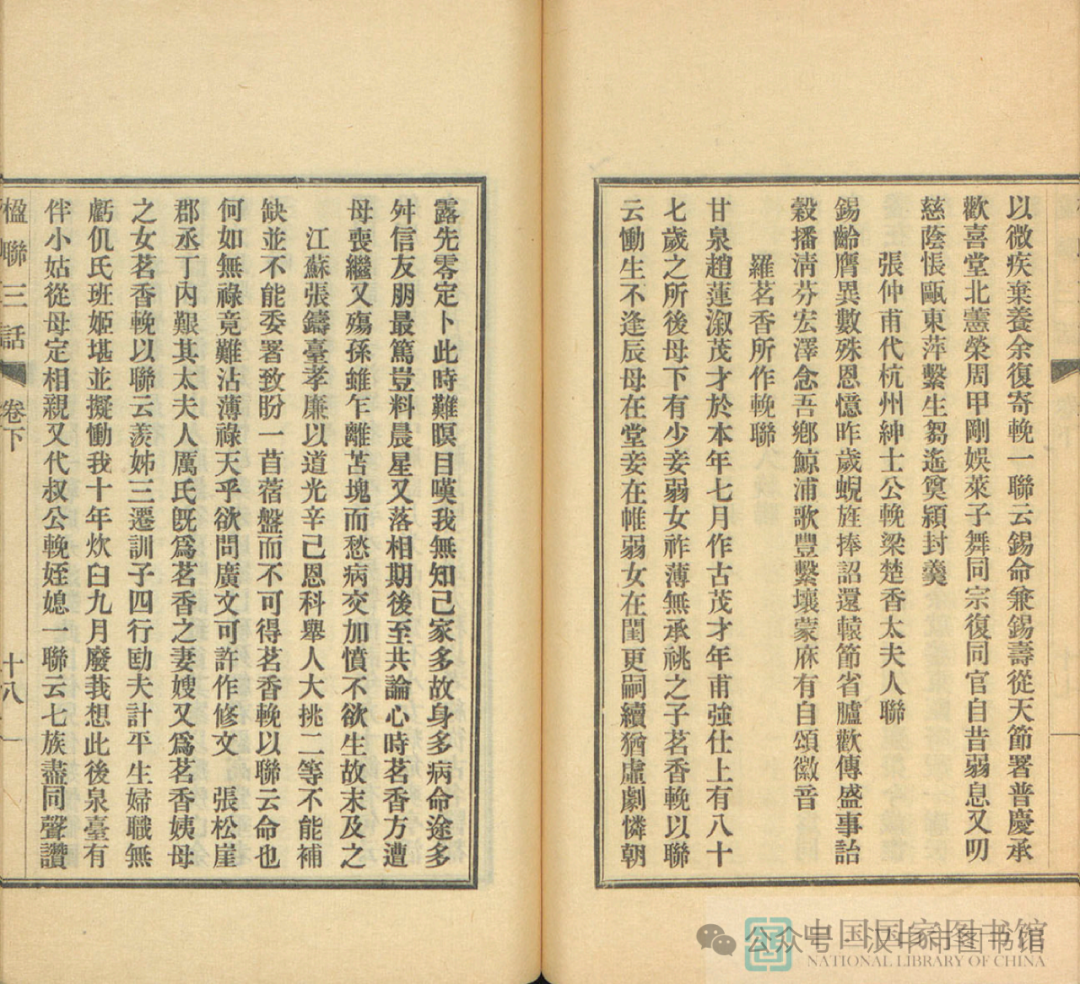 以微疾棄養余復寄輓一聯云錫命兼錫壽從天節署普慶承
歡喜堂北蕙榮周甲剛娛萊子舞同宗復同官自昔弱息又叨
慈蔭悵甌東萍繫生芻遙奠潁封羹
張仲甫代杭州紳士公輓梁楚香太夫人聯
錫齡膺異數殊恩憶昨歲蜺旌捧詔還轅節省臚歡傳盛事詒
穀播清芬宏澤念吾鄉鯨浦歌豐繫壤蒙庥有自頌徽音
羅茗香所作輓聯
甘泉趙蓮溆茂才於本年七月作古茂才年甫強仕上有八十
七歲之所後母下有少妾弱女祚薄無承祧之子茗香輓以聯
云慟生不逢辰母在堂妾在帷弱女在閨更嗣續猶虛劇憐朝
露先零定卜此時難瞑目嘆我無知己家多故身多病命途多
舛信友朋最篤豈料晨星又落相期後至共論心時茗香方遭
母喪繼又殤孫雖乍離苫塊而愁病交加憤不欲生故末及之
江蘇張鑄臺孝廉以道光辛巳恩科舉人大挑二等不能補
缺並不能委署致盼一苜蓿盤而不可得茗香輓以聯云命也
何如無祿竟難沾薄祿天乎欲問廣文可許作修文 張松崖
郡丞丁內艱其太夫人厲氏旣爲茗香之妻嫂又爲茗香姨母
之女茗香輓以聯云羨姊三遷訓子四行勖夫計平生婦職無
虧仉氏班姬堪並擬慟我十年炊臼九月廢莪想此後泉臺有
伴小姑從母定相親又代叔公輓姪媳一聯云七族盡同聲讚
楹聯三話 卷下 十八
公众号·汉中市图书馆
中国国家图书馆
NATIONAL LIBRARY OF CHINA